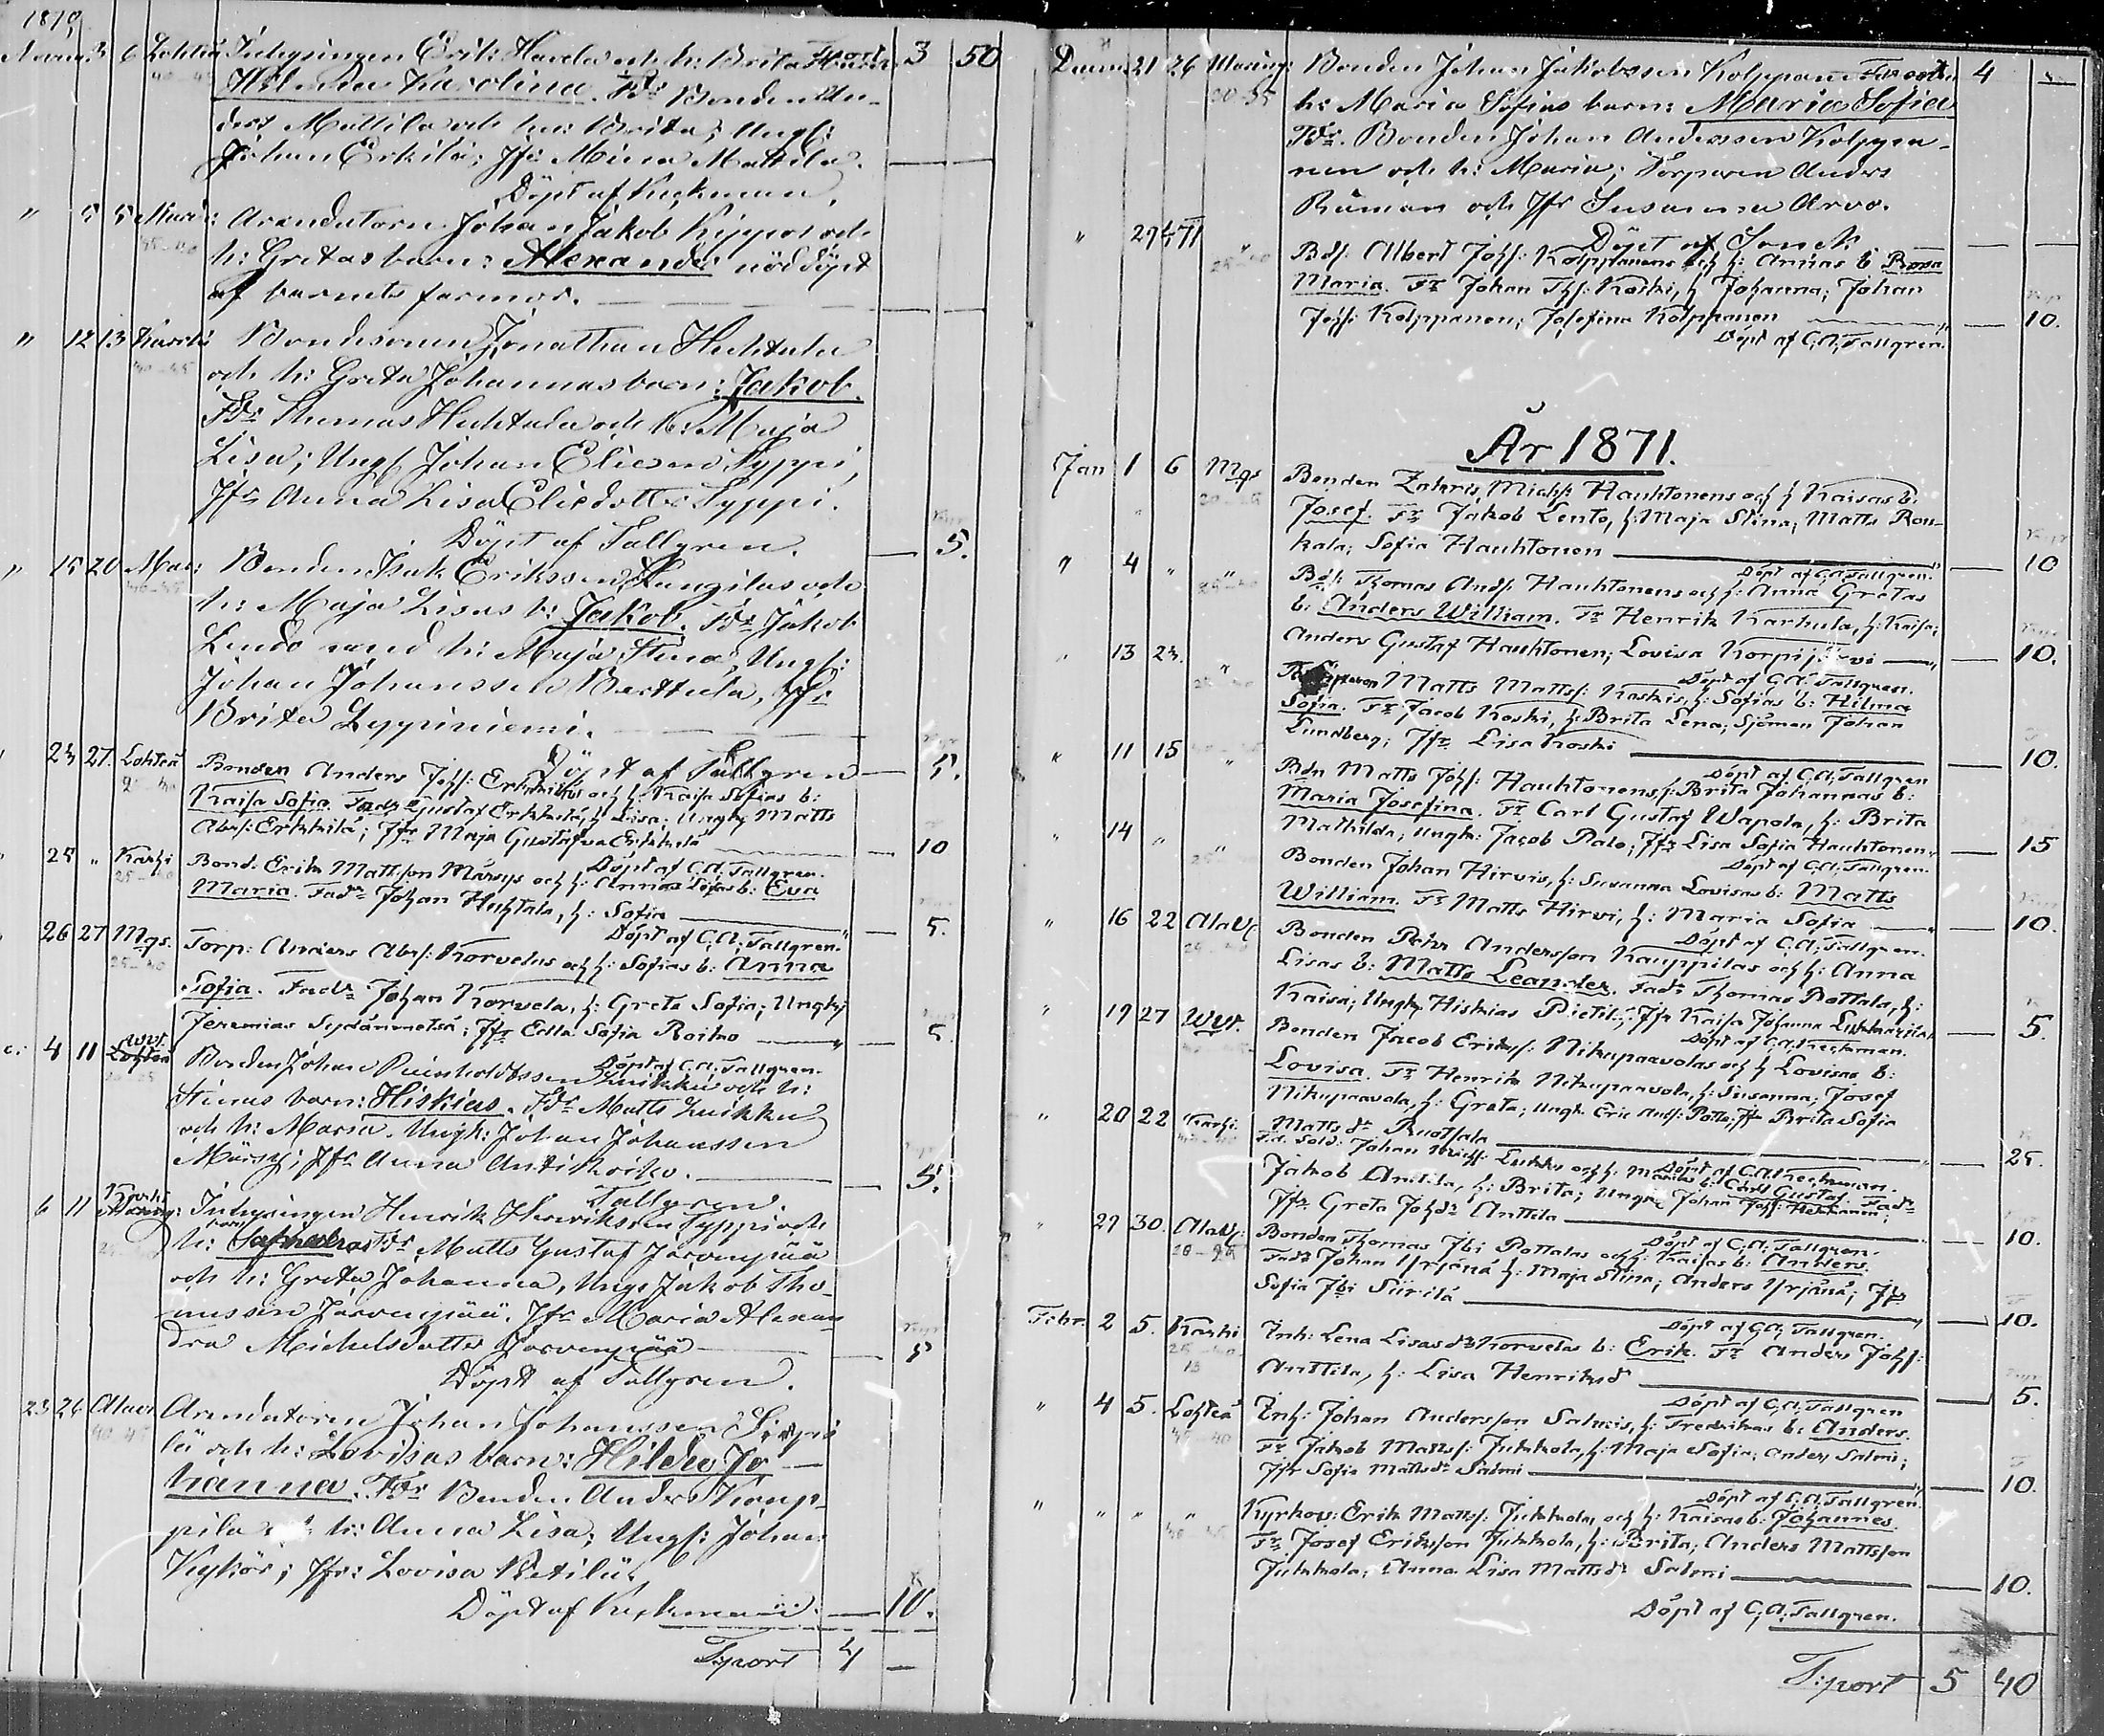 1870,
3 6 Lohteå Inhysingen Erik och h: Brita 3 50
Helena Karolina. Fdr Bonden An-
ders Mattila och h: Brita; Ungk:
Johan Erkilä; Jfr: Mina Mattila.
Döpt af Keckman.
" 5 5 Arendatorn Johan Jakob Kippo och
h: Gretas barn: Alexander nöddöpt
af barnets farmor.
" 12 13 Bondesonen Jonathan Huhtala
och h: Greta Johannas barn: Jakob.
Fdr Thomas Huhtala och h: Maja
Lisa; Ungk Johan Eliesen Typpi,
Jfr Anna Lisa Eliedotter Typpi.
Döpt af Tallgren. — 5.
" 15 20 Mar: Bonden Isak Eriksson och
h: Maja Lisas b: Jakob. Fdr Jakob
med h: Maja Stina, Ungk:
Johan Johansson Jfr:
Brita Lyppiniemi.
Döpt af Tallgren — 5.
23 27. Lohteå Bonden Anders Johss: Erkkiläs och h: Kaisa Sofias b:
Kaisa Sofia. Fadr Gustaf Erkkilä, h: Lisa; Ungk Matts
Abrs: Erkkilä; Jfr Maja Gustafva Erkkilä — 10
Döpt af C. A. Tallgren.
25 " Karhi Bond. Erik Mattsson Märsys och h: Annas b: Eva
Maria. Fadr Johan Huhtala, h: Sofia — 5.
Döpt af C. A. Tallgren.
26 27 Mgs. Torp: Anders Abrs: Korvelas och h: Sofias b: Anna
Sofia. Fadr Johan Korvela, h: Greta Sofia; Ungk
Jeremias Sydänmetsä; Jfr Edla Sofia Roiko — 5
Döpt af C. A. Tallgren.
4 11 Wvt. Bonden Johan Reinholdsson Luikku och h:
Stinas barn: Hiskias. Fdr Matts Luikku
och h: Maria. Ungk: Johan Johansson
Märsy; Jfr Anna Anttikoiko. — 5.
Tallgren.
6 11 Inhysingen Henrik Henriksson Typpi och
h: Fdr Matts Gustaf Järvenpää
och h: Greta Johanna, Ungk Jakob Tho-
masson Järvenpää. Jfr Maria Alexan-
dra Michelsdotter Järvenpää — 5
Döpt af Tallgren.
23 26 Alavi Arendatoren Johan Johansson Sirpi-
lä och h: Lovisas barn: Hilda Jo-
hanna. Fdr Bonden Anders Kaup-
pila och h: Anna Lisa; Ungk: Johan
Kykös; Jfr: Lovisa Pietilä.
Döpt af Keckman. — 10.
Tport 4 —
Decem 21 26 Bonden Johan Jakobsson Kolppane och 4 —
h: Maria Sofias barn: Maria Sofia
Fdr. Bonden Johan Andersson Kolppa-
nen och h: Maria; Torparen Anders
Råman och Jfr Susanna Arvo.
Döpt af Sonck.
" 29 Bds. Albert Johss: Kolppanens och h: Annas b: Rosa
Maria. Fr Johan Koski, h Johanna; Johan
Johss: Kolppanen; Josefina Kolppanen — 10.
Döpt af C. A. Tallgren.
År 1871.
Jan 1 6 Mgs Bonden Zakris Michs: Hauhtonens och h Kaisas b.
Josef. Fr Jakob Lento, h: Maja Stina; Matts Ron-
kala; Sofia Hauhtonen — 10
Döpt af C. A. Tallgren.
" 4 " " Bds: Thomas Ands: Hauhtonens och h: Anna Gretas
b: Anders William. Fr Henrik Karhula, h: Kaisa;
Anders Gustaf Hauhtonen; Lovisa Korpijärvi — 10.
Döpt af C. A. Tallgren.
" 13 23. " Matts Mattss: Koskis, h: Sofias b: Hilma
Sofia. Fr Jacob Koski, h: Brita Lena; Sjöman Johan
Lundberg; Jfr Lisa Koski — 10.
Döpt af C. A. Tallgren
" 11 15 " Bdn Matts Johs: Hauhtonens, h: Brita Johannas b:
Maria Josefina. Fr Carl Gustaf Wapola, h: Brita
Mathilda; Ungk: Jacob Palo; Jfr Lisa Sofia Hauhtonen — 15
Döpt af C. A. Tallgren.
" 14 " " Bonden Johan Hirvis, h: Susanna Lovisas b: Matts
William. Fr Matts Hirvi, h: Maria Sofia — 10.
Döpt af C. A. Tallgren.
" 16 22 Alav Bonden Pehr Andersson Kauppilas och h: Anna
Lisas b: Matts Leander. Fadr Thomas Pottala, h:
Kaisa; Ungk Hiskias Pietilä; Jfr Kaisa Johanna — 5.
Döpt af C. A. Keckman.
" 19 27 Wvt. Bonden Jacob Erikss: Nikupaavolas och h Lovisas b:
Lovisa. Fr Henrik Nikupaavola, h: Susanna; Josef
Nikupaavola, h: Greta; Ungk Eric Ands: Jfr Brita Sofia
Matts dr Ruotsala — 25.
Döpt af C. A. Keckman.
" 20 22 Karhi Johan och h: b: Carl Gustaf. Fadr
Jakob Anttila, h: Brita; Ungk Johan
Jfr Greta Johdr Anttila — 10.
Döpt af C. A. Tallgren.
" 29 30. Alav: Bonden Thomas Jbi Pottalas och h: Kaisas b: Anders.
Fadr Johan Yrjänä h: Maja Stina; Anders Yrjänä; Jfr
Sofia Jbi Siirilä — 10.
Döpt af C. A. Tallgren.
Febr. 2 5. Karhi Inh: Lena Lisas dr Korvelas b: Erik. Fr Anders Johss:
Anttila, h: Lisa Henriksd — 5.
Döpt af C. A. Tallgren
" 4 5. Lohteå Inh: Johan Andersson Salmis, h: Fredrikas b: Anders.
Fr Jakob Mattss: Jukkola, h: Maja Sofia; Anders Salmi;
Jfr Sofia Mattsdr Salmi — 10.
Döpt af C. A. Tallgren.
" " " " Kyrkov: Erik Mattss: Jukkolas och h: Kaisas b: Johannes.
Fr Josef Eriksson Jukkola, h: Brita; Anders Mattsson
Jukkola; Anna Lisa Mattsd: Salmi — 10.
Döpt af C. A. Tallgren.
T:port 5 40